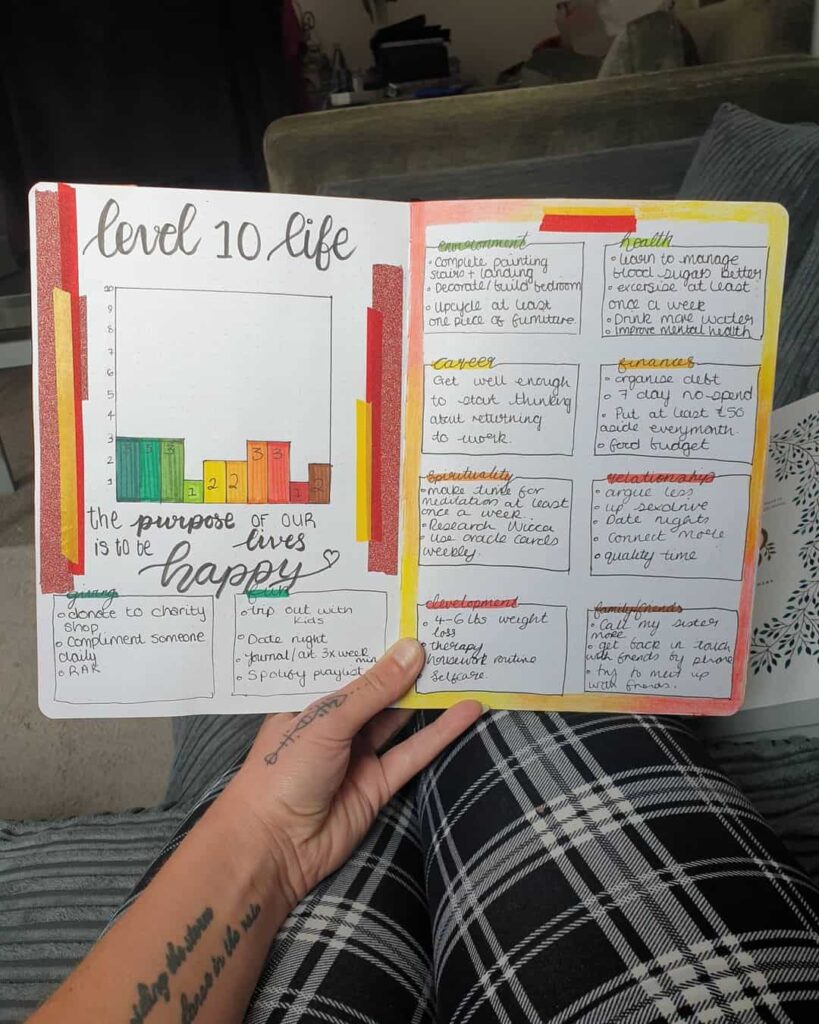 level 10 life
10
9
8
7
6
5
4
3
2
1
3 3 3 1 2 2 3 3 1 2
the purpose OF OUR
lives
is to be
happy
giving
donate to charity
shop
Compliment someone
daily
RAK
fun
trip out with
kids
Date night
Journal/art 3x week
min
Spotify playlist
environment
Complete painting
stairs + landing
Decorate/build bedroom
Upcycle at least
one piece of furniture.
health
learn to manage
blood sugars better
excersise at least
once a week
Drink more water
Improve mental health
career
Get well enough
to start thinking
about returning
to work.
finances
organise debt
7 day no-spend
Put at least £50
aside everymonth.
food budget
spirituality
make time for
meditation at least
once a week
Research Wicca
Use oracle cards
weekly.
relationship
argue less
up sexdrive
Date nights
connect more
quality time
development
4-6 lbs weight
loss
therapy
housework routine
Selfcare.
family/friends
Call my sister
more
get back in touch
with friends by phone
try to meet up
with friends.
the storm
in the rain